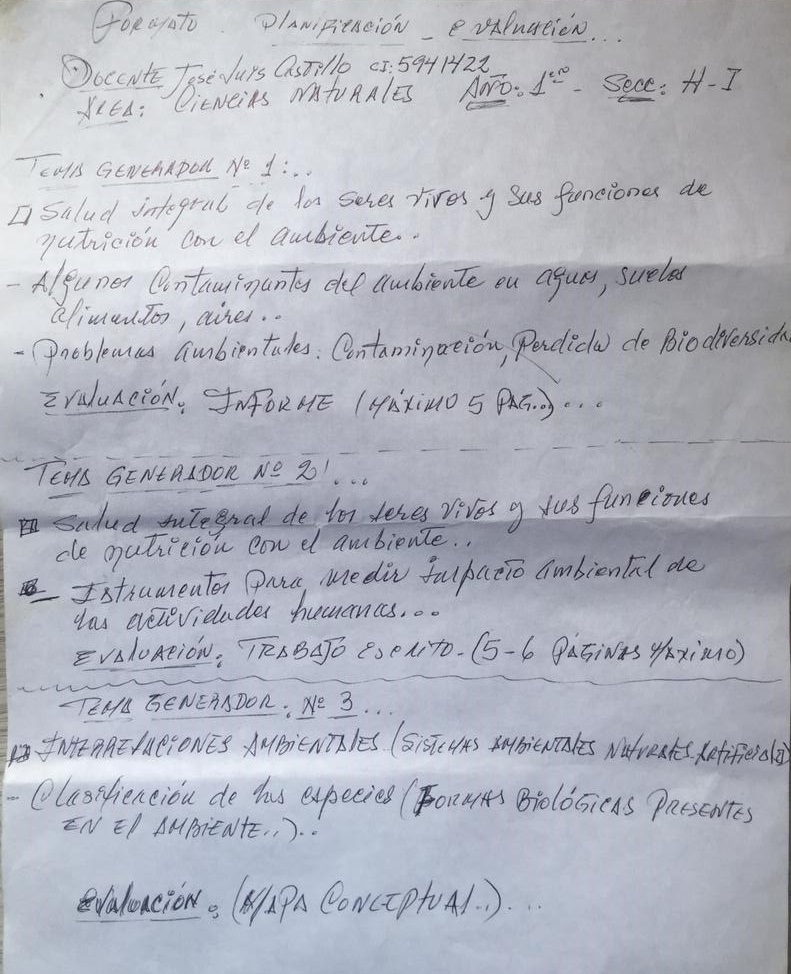 Formato. Planificación - evaluación...
Docente José Luis Castillo CI:5941422
Área: Ciencias Naturales Año: 1ero - Secc: H-I
Tema Generador Nº 1:..
Salud integral de los seres vivos y sus funciones de
nutrición con el ambiente..
- Algunos Contaminantes del ambiente en aguas, suelos
alimentos, aires..
- Problemas ambientales: Contaminación, Perdida de Biodiversida
Evaluación: INFORME (MÁXIMO 5 PAG...)...
Tema Generador Nº 2!...
Salud integral de los seres vivos y sus funciones
de nutrición con el ambiente..
- Istrumentos para medir impacto ambiental de
las actividades humanas...
Evaluación: TRABAJO Escrito - (5-6 PÁGINAS MÁXIMO)
Tema Generador: Nº 3...
INTERRELACIONES AMBIENTALES (Sistemas AMBIENTALES Naturales. Artificiales)
- Clasificación de las especies (FORMAS BIOLÓGICAS PRESENTES
EN El AMBIENTE..)..
Evaluación: (MAPA CONCEPTUAL..)...